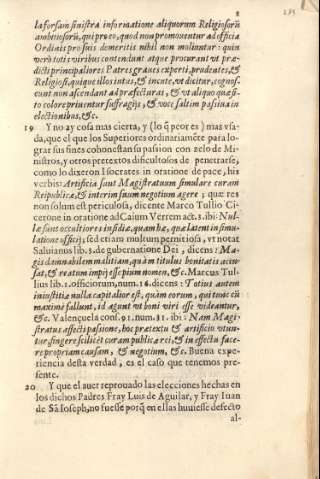 8
la forsam sinistra informatione aliquorum Religiosorũ
ambitiosorũ, qui pro eo, quod non promoventur ad officia
Ordinis pro suis demeritis nihil non moliuntur: quin
verò totis viribus contendunt atque procurant vt præ-
dicti principaliores: Patres graues experti, prudentes, &
Religiosi, qui que illos intus, & incute, vt dicitur, cognos-
cunt non ascendant ad præfecturas, & vt aliquo quæsi-
to colore priuentur suffragijs, & voce saltim passiua in
electionibus, &c.
19 Y no ay cosa mas cierta, y (lo q̃ peor es) mas vsa-
da, que el que los Superiores ordinariamẽte para lo-
grar sus fines cohonestan su passion con zelo de Mi-
nistros, y otros pretextos dificultosos de penetrarse,
como lo dixeron Isocrates in oratione de pace, his
verbis: Artificia sunt Magistratuum simulare curam
Reipublicæ, & interim suum negotium agere; que res
non solum est periculosa, dicente Marco Tullio Ci-
cerone in oratione ad Caium Verrem act. 3. ibi: Nul-
læ sunt occultiores insidiæ, quam hæ, quæ latent in simu-
latione officij; sed etiam multum pernitiosa, vt notat
Saluianus lib. 3. de gubernatione Dei, dicens: Ma-
gis damnabilem malitiam, quàm titulus bonitatis accu-
sat, & reatum impij esse pium nomen, &c. Marcus Tul-
lius lib. 1. officiorum, num. 16. dicens: Totius autem
iniustitiæ nulla capitalior est, quàm eorum, qui tunc cũ
maximè fallunt, id agunt vt boni viri esse videantur,
&c. Valençuela cons. 91. num. 31. ibi: Nam Magi-
stratus affecti passione, hoc prætextu & artificio vtun-
tur fingere scilicet curam publicæ rei, & in effectu face-
re propriam causam, & negotium, &c. Buena expe-
riencia desta verdad, es el caso que tenemos pre-
sente.
20 Y que el auer reprouado las elecciones hechas en
los dichos Padres Fray Luis de Aguilar, y Fray Iuan
de Sã Ioseph, no fuesse porq̃ en ellas huuiesse defecto
al-